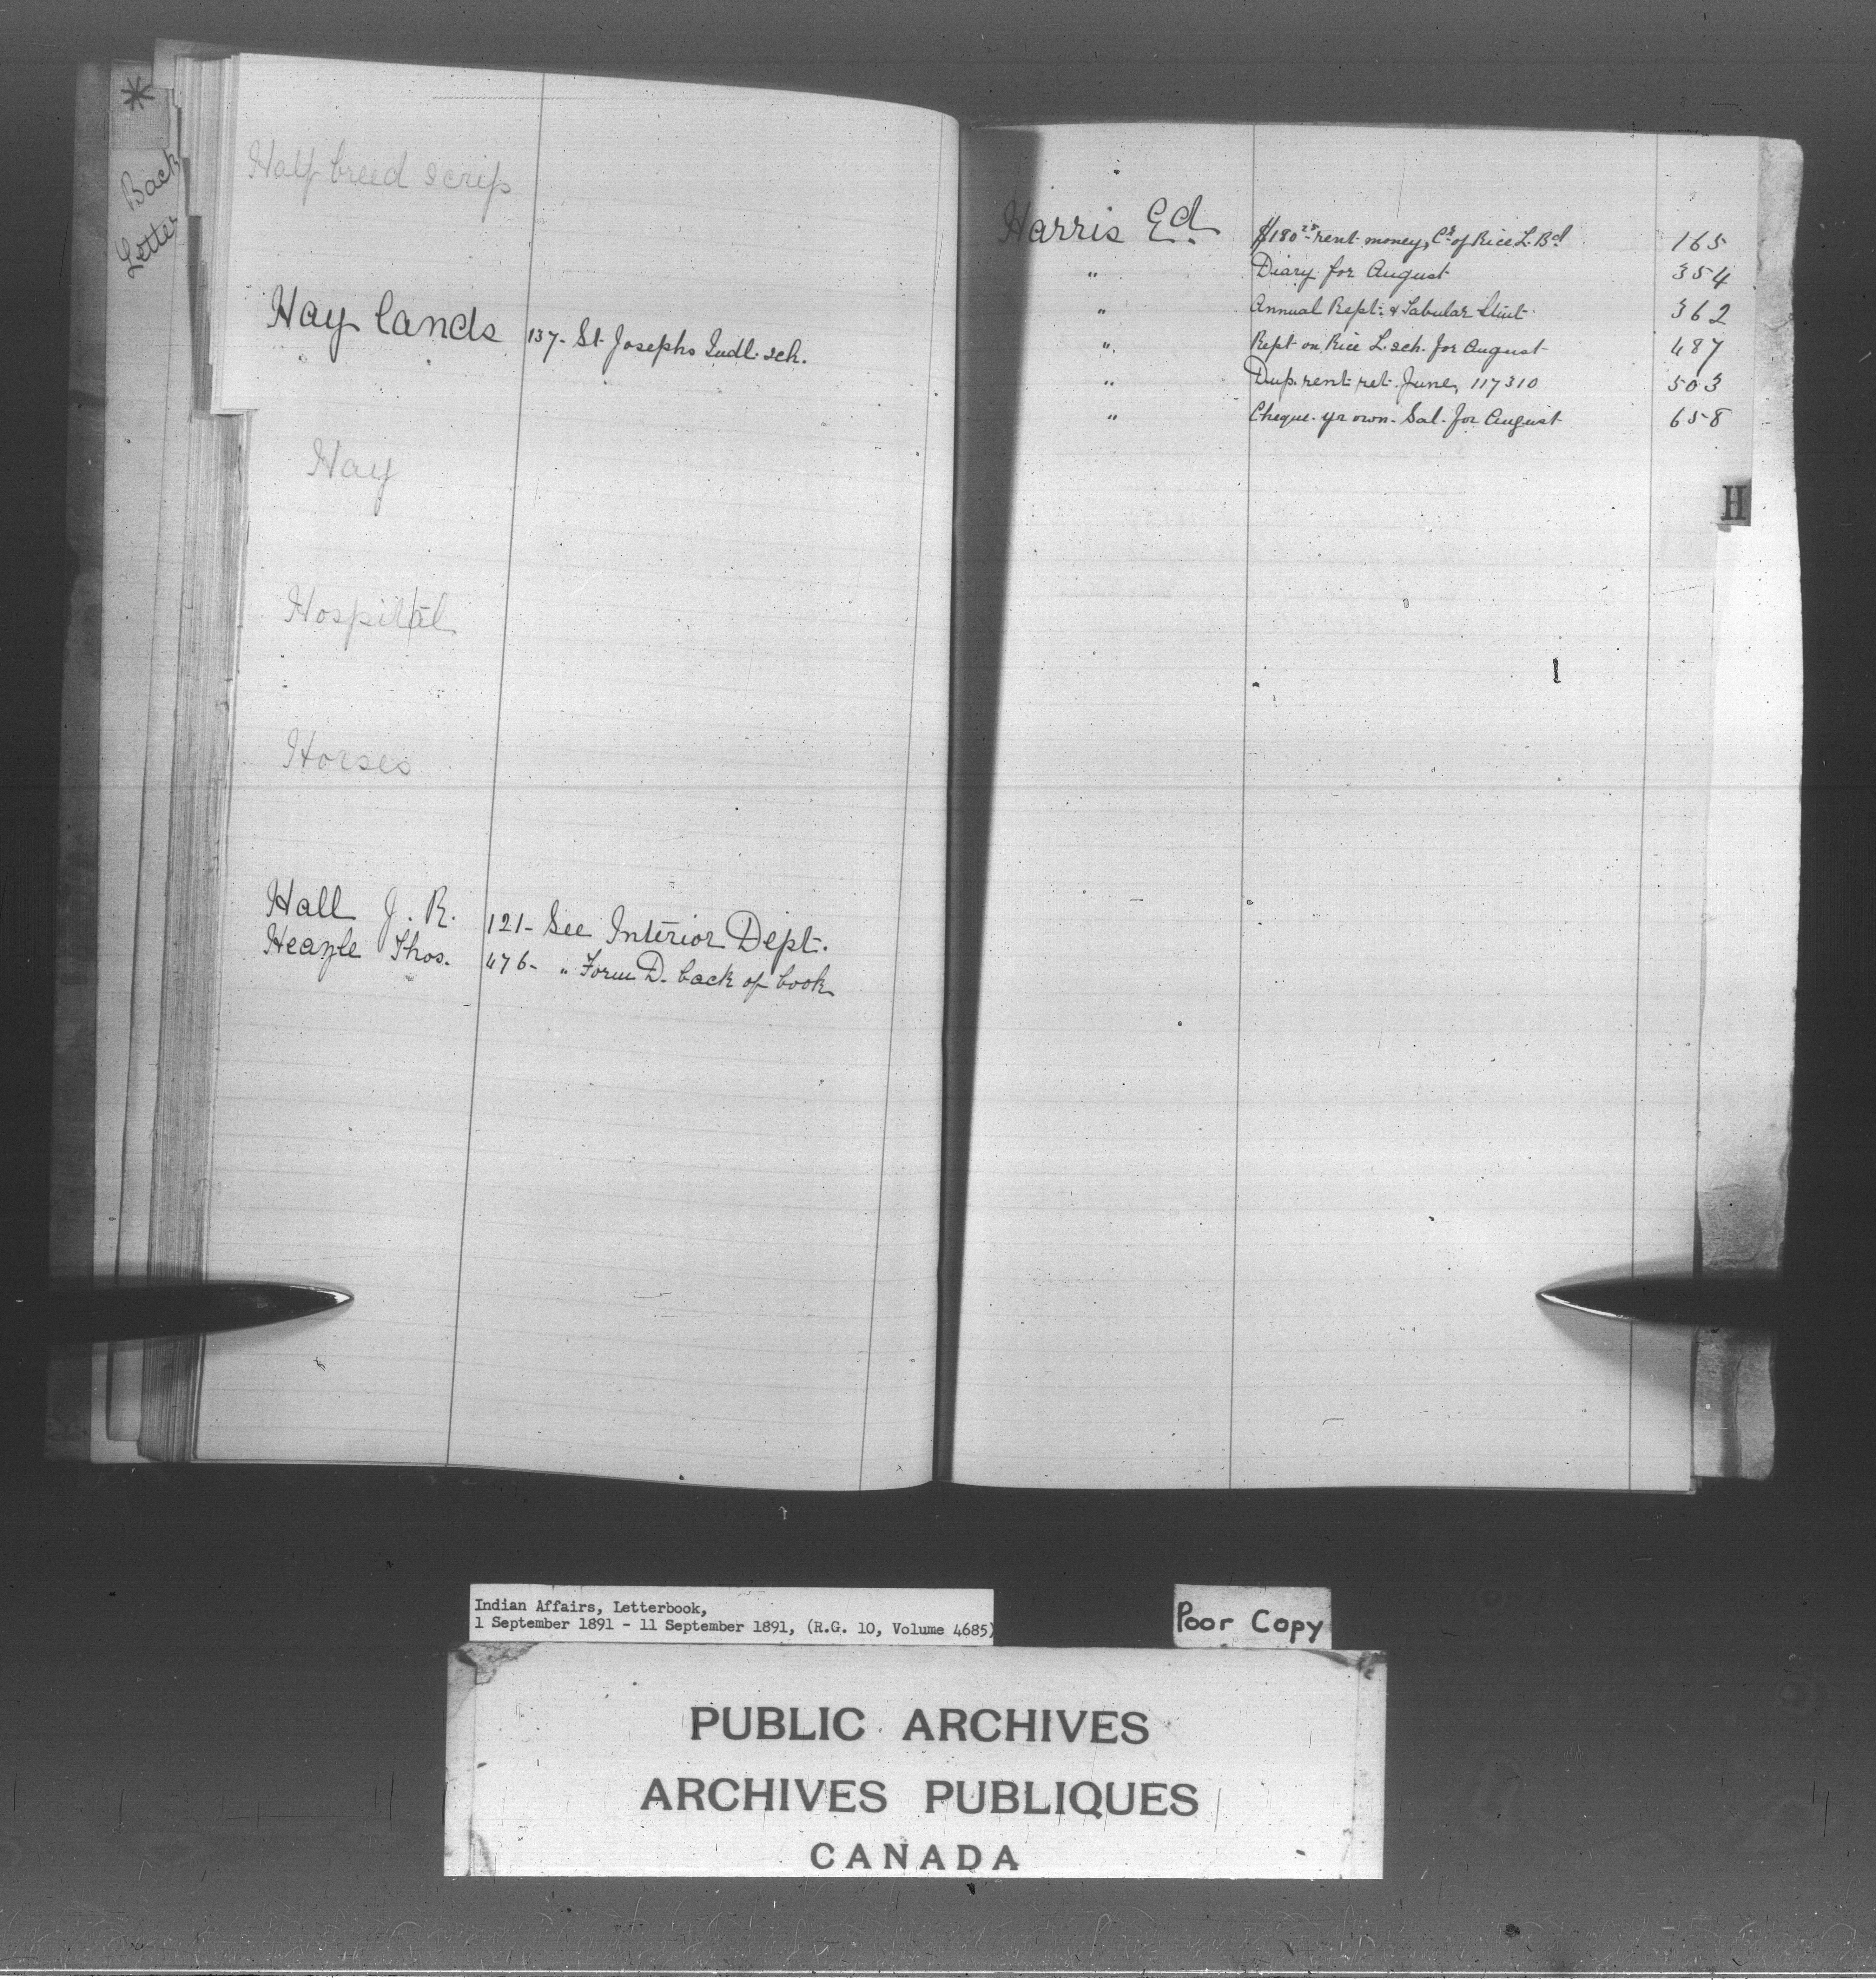 *
Back
Letter
Half breed scrip
Hay lands 137- St. Josephs Indl. sch.
Hay
Hospital
Horses
Hall J. R. 121- See Interior Dept.
Thos. 476- " Form D. back of book
Harris Ed. $180 rent money, of Rice L. Bd 165
" Diary for August 354
" Annual Rept. & Tabular Stmt 362
" Rept on Rice L. sch. for August 487
" Dup. rent ret. June, 117310 503
" Cheque yr own Sal. for August 658
H
Indian Affairs, Letterbook,
1 September 1891 - 11 September 1891, (R.G. 10, Volume 4685)
Poor Copy
PUBLIC ARCHIVES
ARCHIVES PUBLIQUES
CANADA